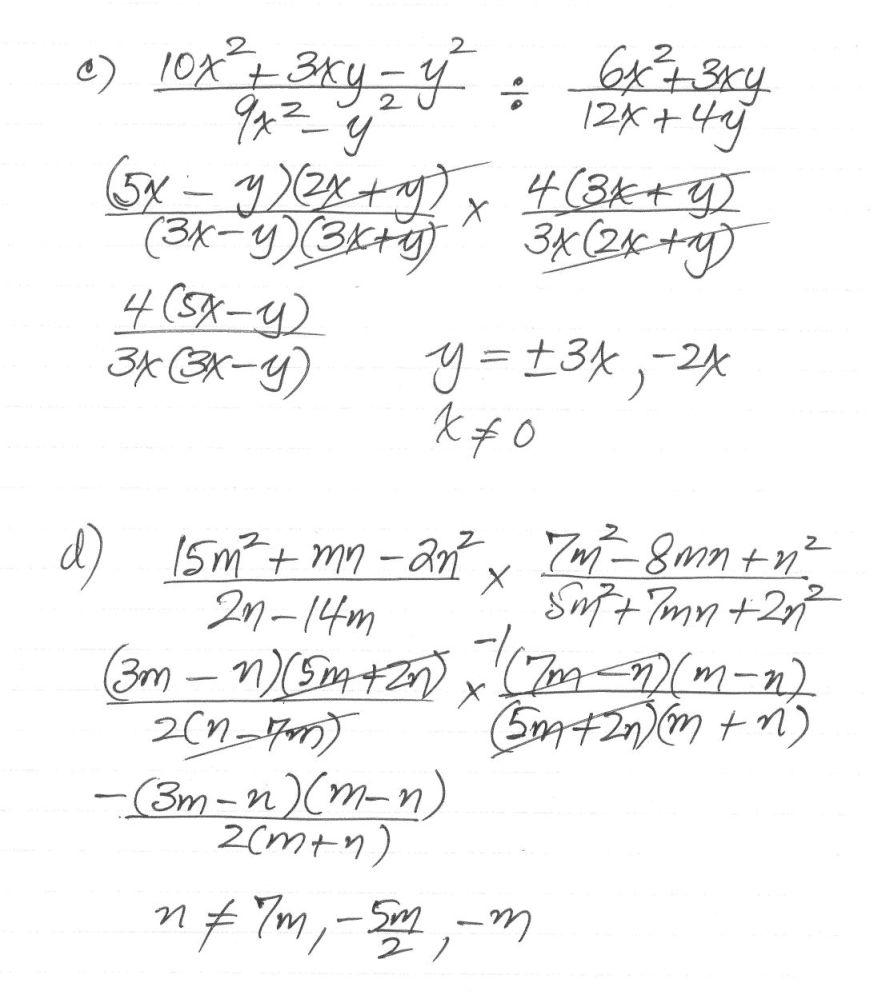 c) (10x² + 3xy - y²)/(9x² - y²) ÷ (6x² + 3xy)/(12x + 4y)
(5x - y)(2x + y)/(3x - y)(3x + y) × 4(3x + y)/3x(2x + y)
4(5x - y)/3x(3x - y)
y = ±3x, -2x
x ≠ 0
d) (15m² + mn - 2n²)/(2n - 14m) × (7m² - 8mn + n²)/(5m² + 7mn + 2n²)
(3m - n)(5m + 2n)/2(n - 7m) × -1 (7m - n)(m - n)/(5m + 2n)(m + n)
-(3m - n)(m - n)/2(m + n)
n ≠ 7m, -5m/2, -m